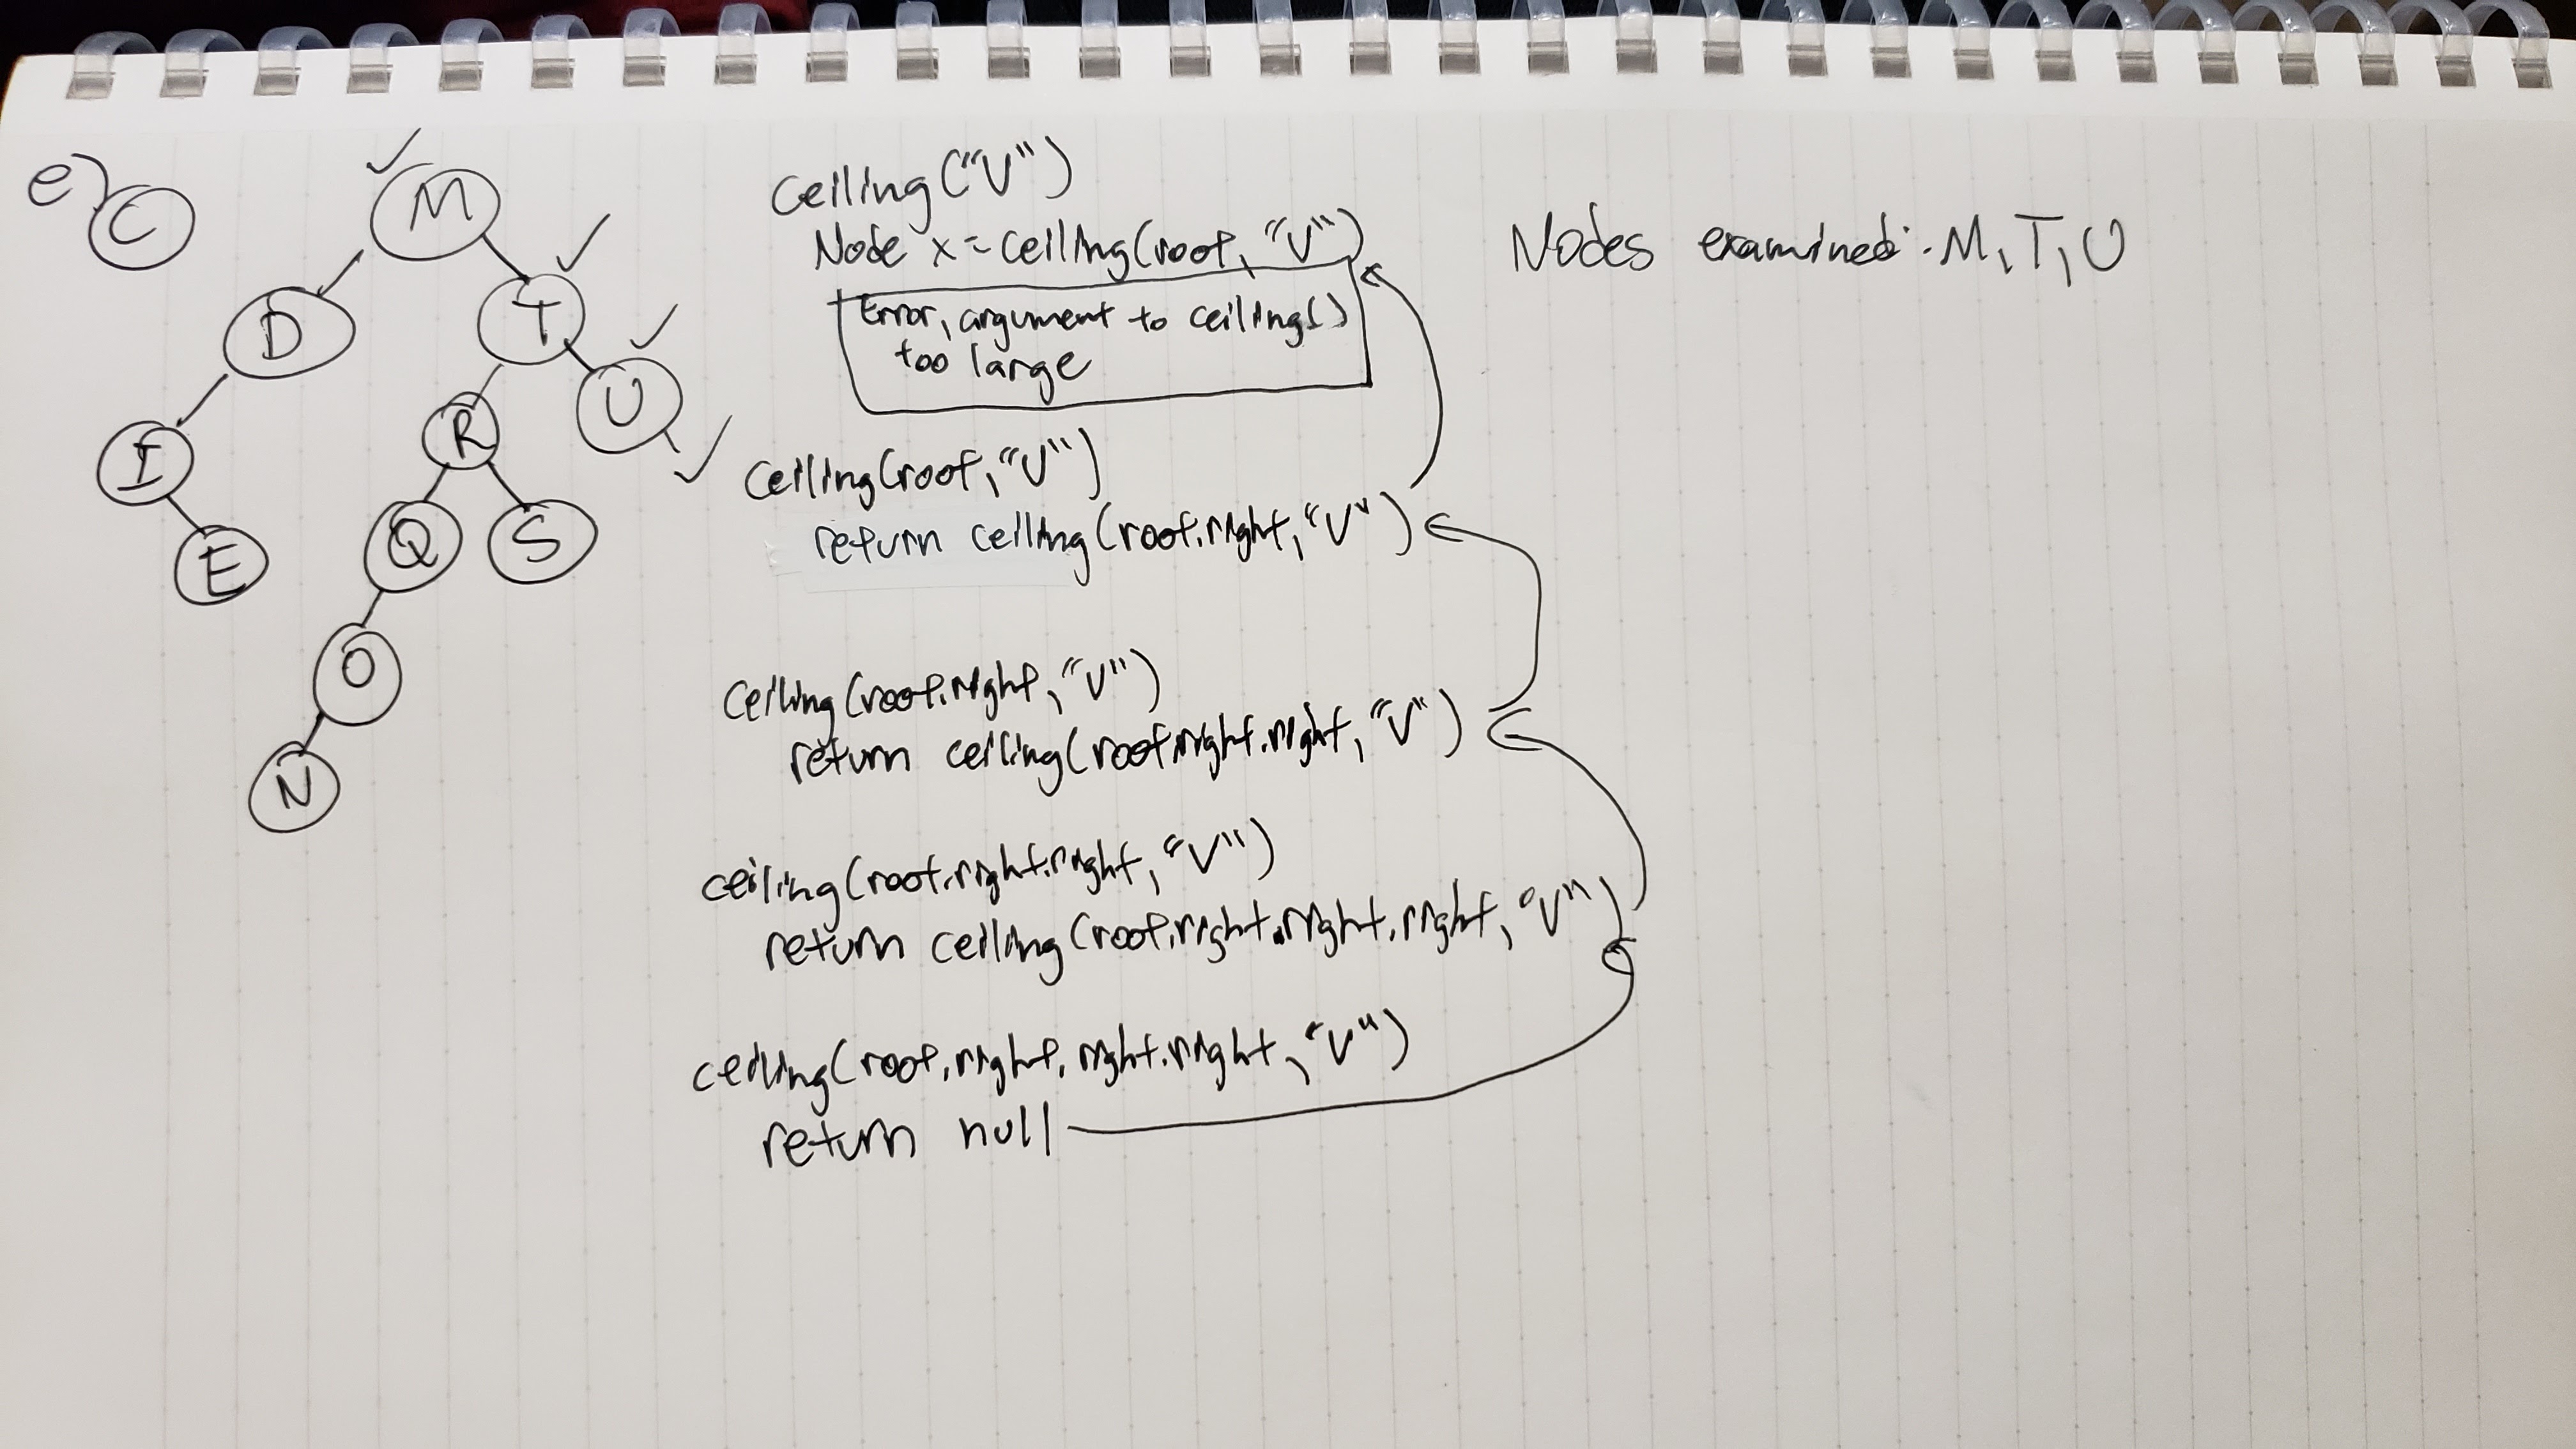 e)
C
M
D
T
I
R
U
E
Q
S
O
N
Ceiling("V")
Node x = ceiling(root, "V")
Error, argument to ceiling()
too large
Ceiling(root, "V")
return ceiling(root.right, "V")
Ceiling(root.right, "V")
return ceiling(root.right.right, "V")
ceiling(root.right.right, "V")
return ceiling(root.right.right.right, "V")
ceiling(root.right.right.right, "V")
return null
Nodes examined: M, T, U